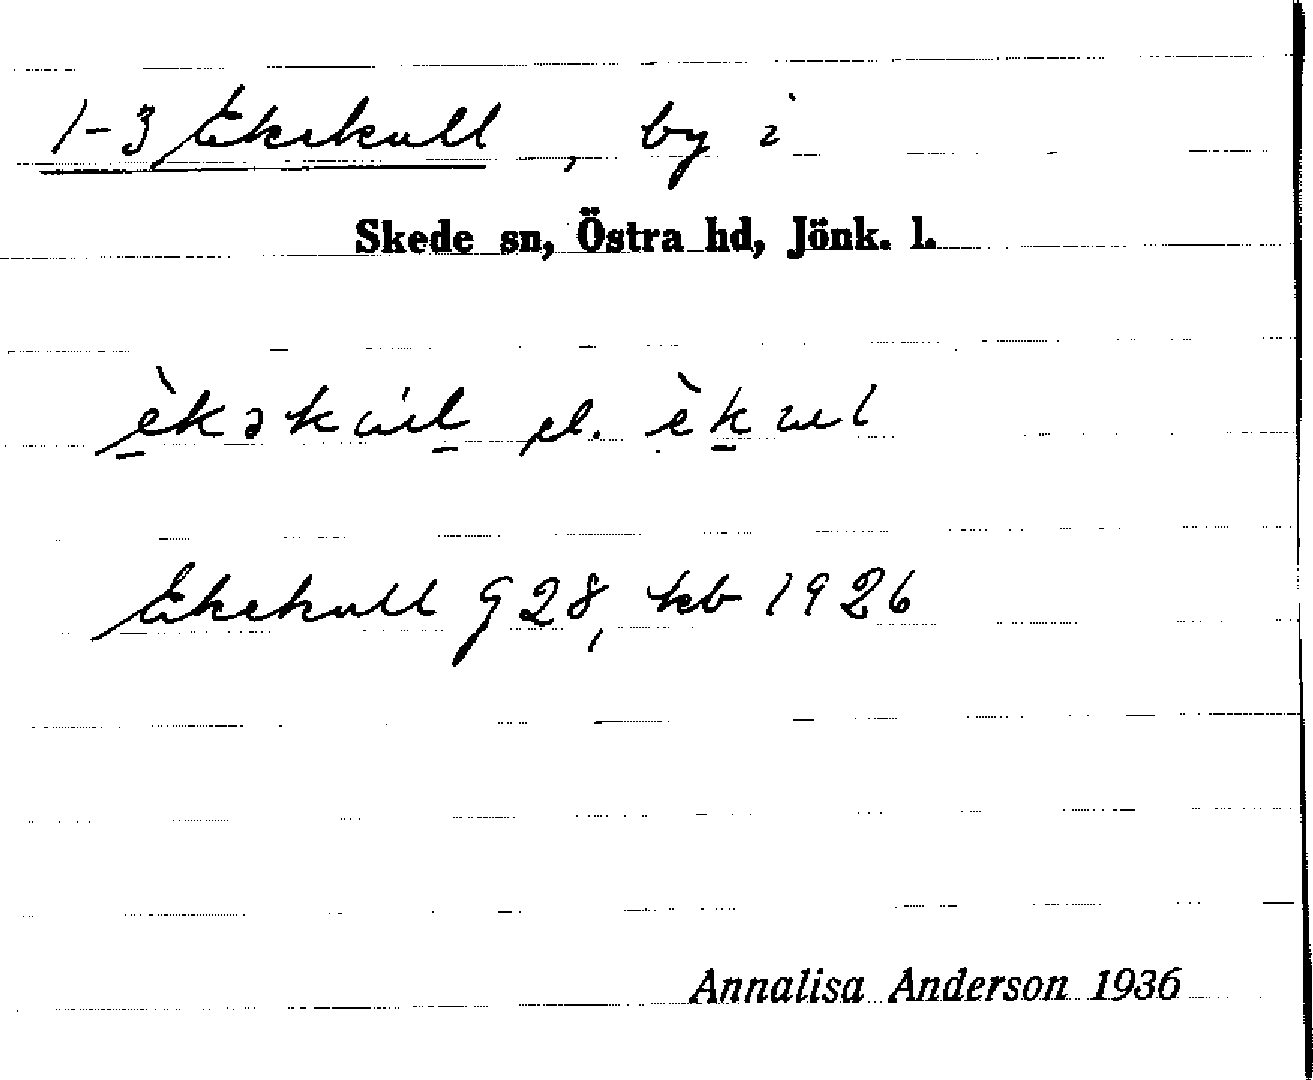 1-3 Ekekull, by i
Skede sn, Östra hd, Jönk. l.
èkəkúl el. èkul
Ekekull G 28, kb 1926
Annalisa Anderson 1936